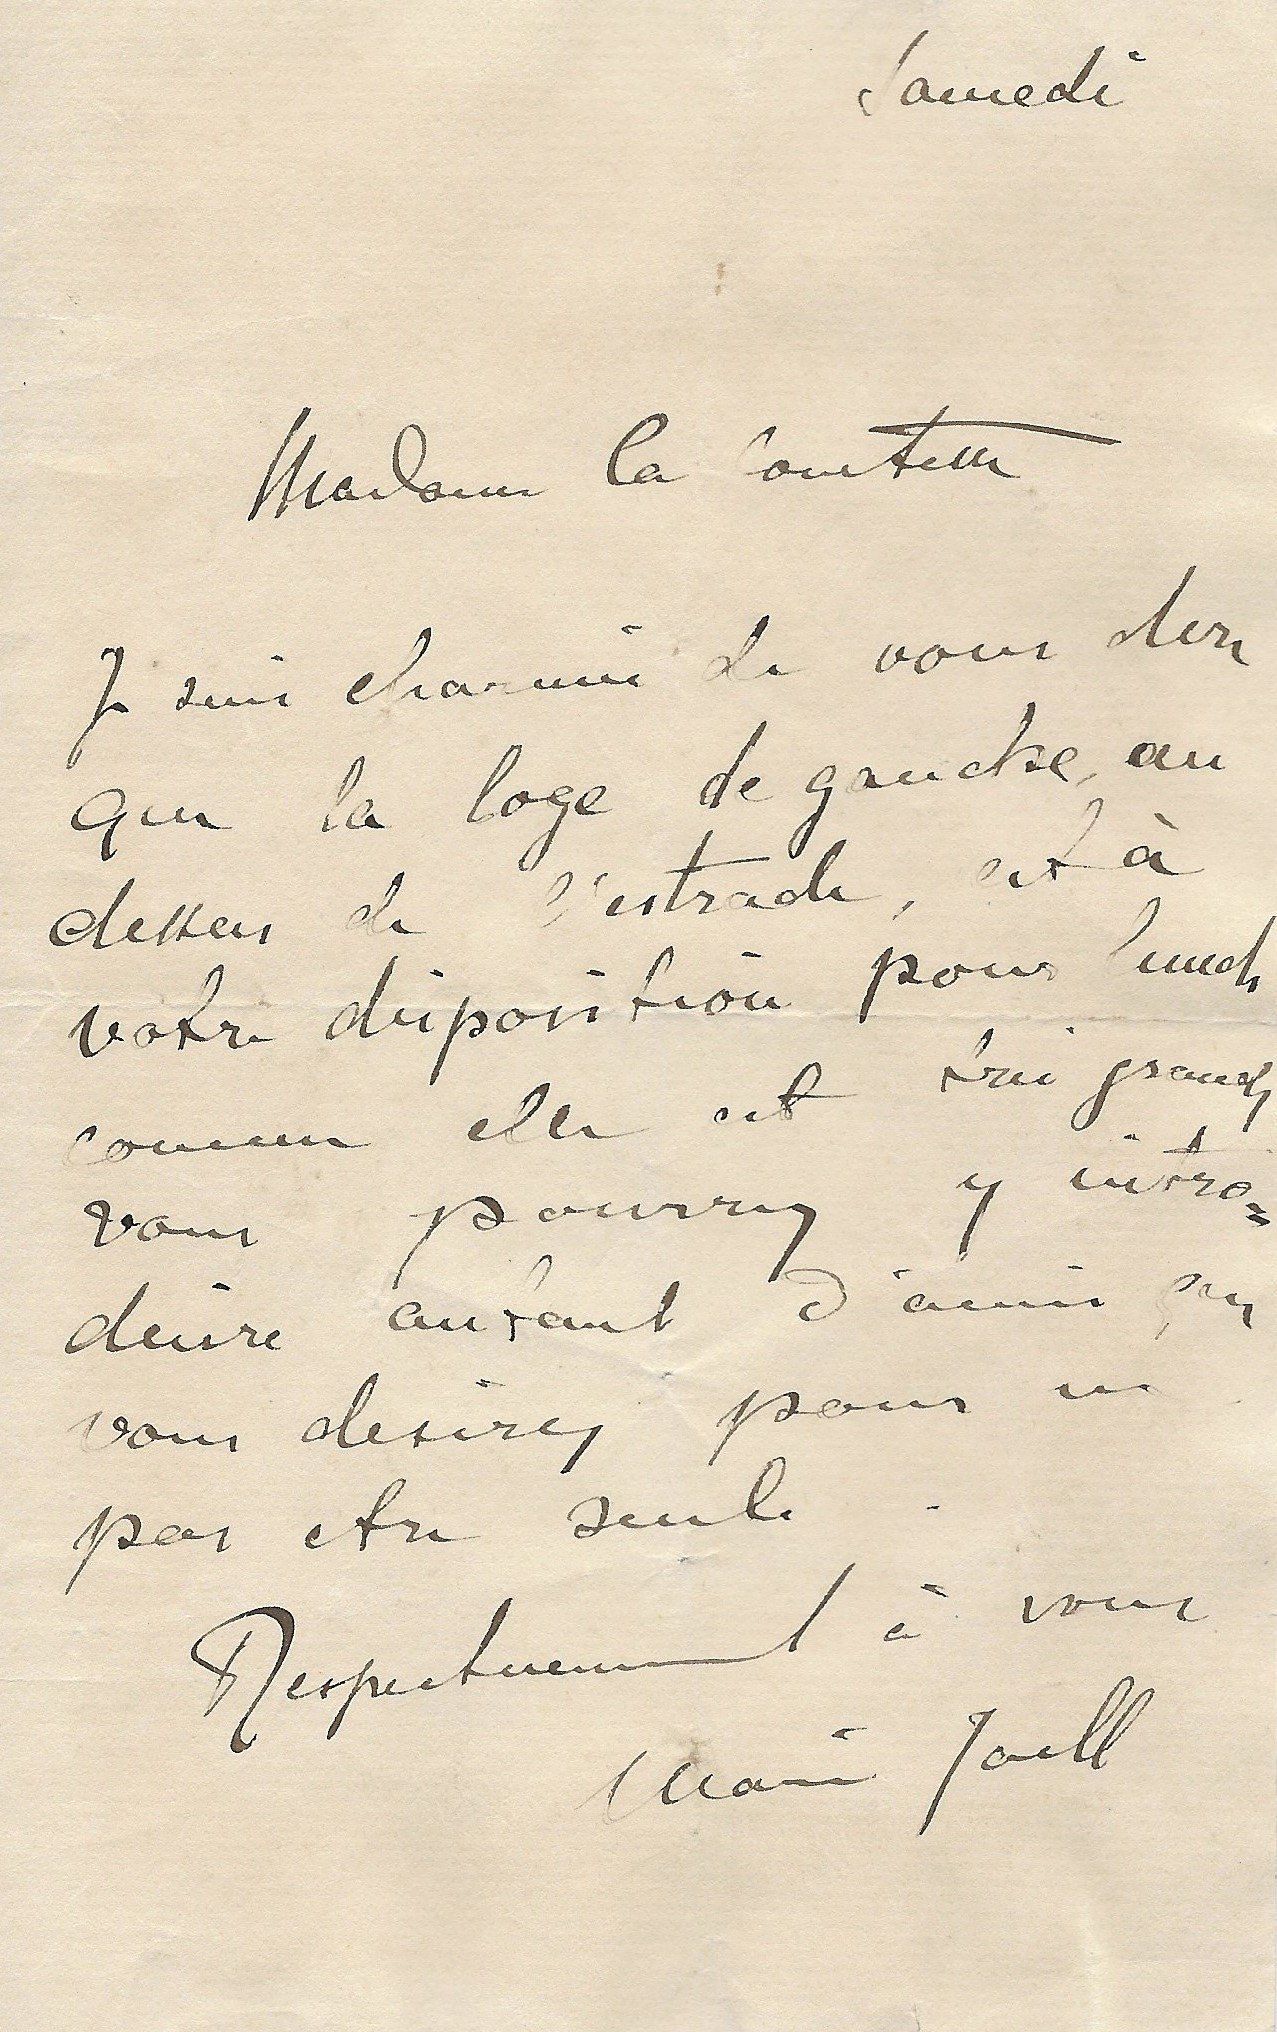 Samedi
Madame la Comtesse
Je suis charmée de vous dire
que la loge de gauche, au
dessus de l'estrade, est à
votre disposition pour lundi
comme elle est très grande,
vous pourrez y intro=
duire autant d'amis que
vous desirez pour ne
pas etre seule.
Respectueusement à vous
Marie Jaëll